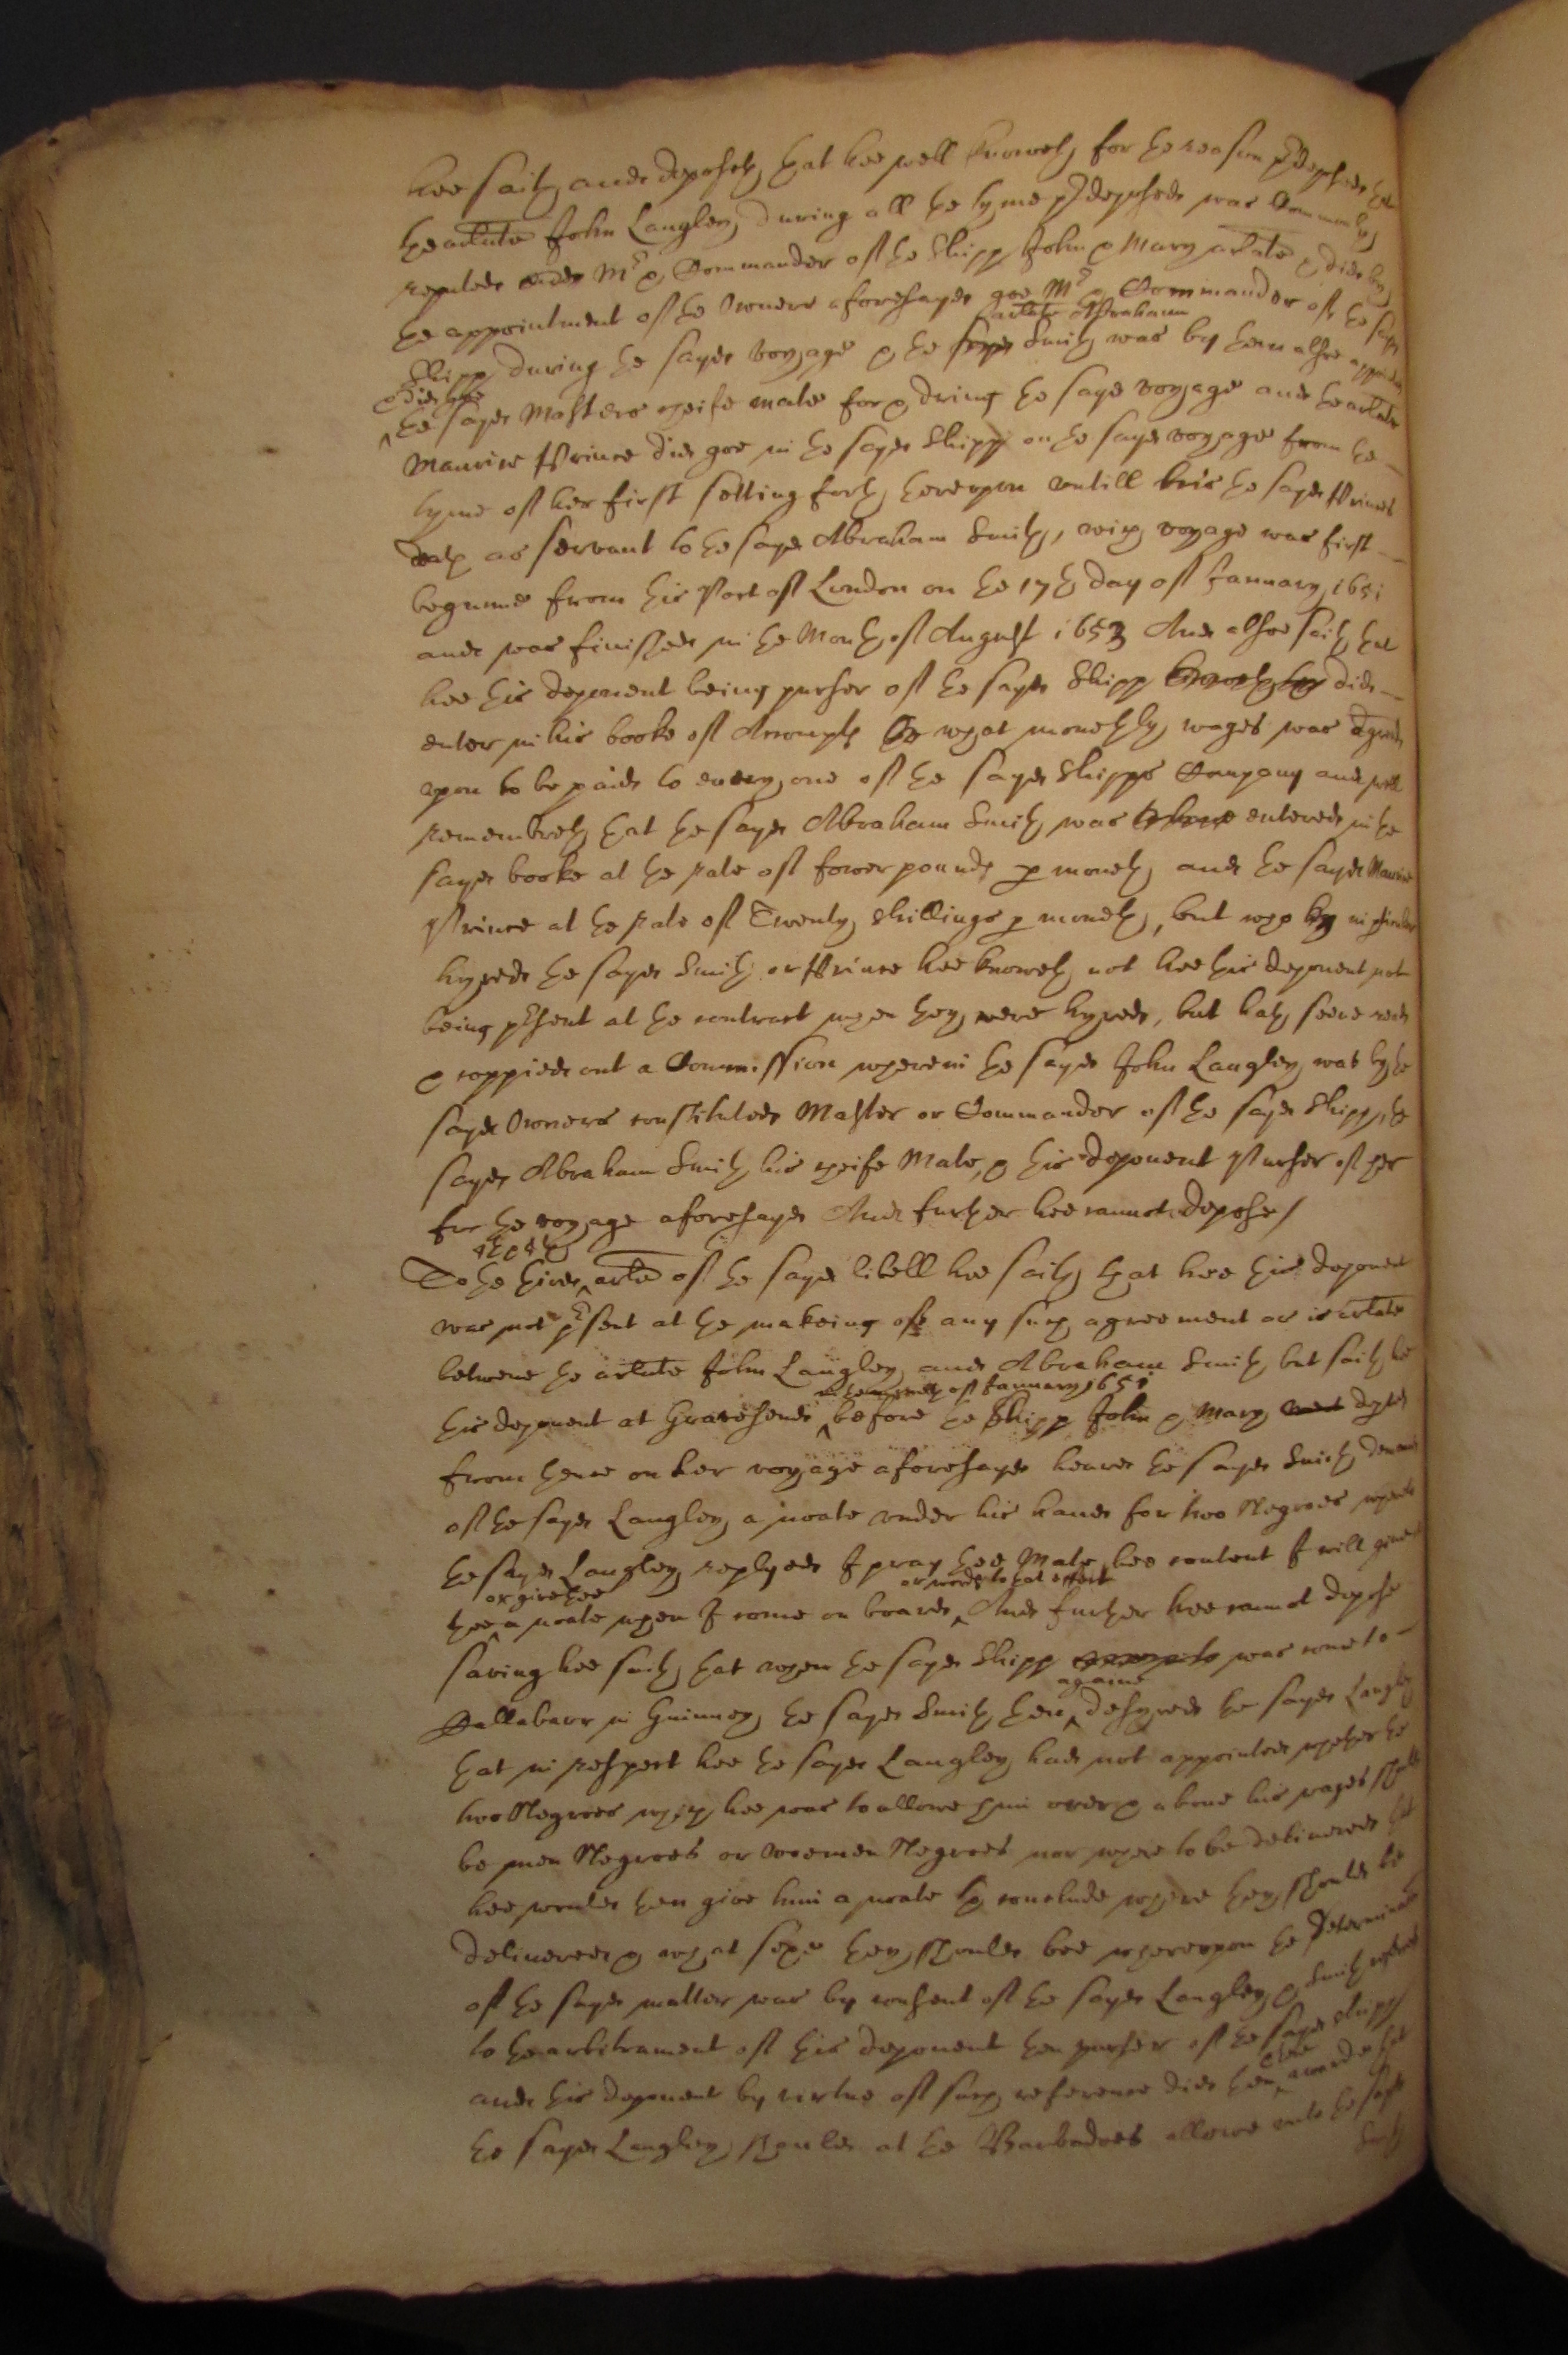 hee saith and deposeth that hee well knoweth for the reason predeposed that
the arlate John Langley during all the tyme predeposed was Commonly
reputed Mr & Commander of the Shipp John & Mary arlate & did by
the appointment of the Owners aforesayd goe Mr & Commander of the sayd
Shipp during the sayd voyage & the arlate Abraham Smith was by them alsoe appointed
& did goe the sayd Masters cheife mate for & dring the sayd voyage and the arlate
Maurice Prince did goe in the sayd Shipp on the sayd voyage from the
tyme of her first setting forth thereupon untill his the sayd Princes
death as servant to the sayd Abraham Smith, which voyage was first
begunne from this Port of London on the 17th day of January 1651
and was finished in the Month of August 1653 And alsoe saith that
hee this deponent being purser of the sayd Shipp did
enter in his booke of Accompts what monethly wages was agreed
upon to be paid to every one of the sayd shipps Company and well
remembreth that the sayd Abraham Smith was entered in the
sayd booke at the rate of fower pounds per moneth and the sayd Maurice
Prince at the rate of Twenty shillings per moneth, but who in particular
hyred the sayd Smith or Prince hee knoweth not hee this deponent not
being present at the contract when they were hyred, but hath seene read
& coppied out a Commission wherein the sayd John Langley was by the
sayd Owners constituted Master or Commander of the sayd shipp, the
sayd Abraham Smith his cheife Mate, & this deponent Purser of her
for the voyage aforesayd And further hee cannot depose/
To the third 4th & 5th arles of the sayd libell hee saith that hee this deponent
was not present at the makeing of any such agreement as is arlate
betweene the arlate John Langley and Abraham Smith but saith hee
this deponent at Gravesend in the moneth of January 1651 before the Shipp John & Mary dept
from thence on her voyage aforesayd heard the sayd Smith demand
of the sayd Langley a noate under his hand for two Negroes whereto
the sayd Langley replyed I pray thee Mate bee content I will give
thee or give thee a noate when I come on board or words to that effect And further hee cannot depose
saving hee saith that when the sayd Shipp was come to
Callabarr in Guinney the sayd Smith then againe desyred the sayd Langley
that in respect hee the sayd Langley had not appointed whether the
two Negroes which hee was to allowe him over & above his wages should
be men Negroes or woemen Negroes nor where to be delivered that
hee would then give him a noate to conclude where they should be
delivered & what sexe they should bee whereupon the determination
of the sayd matter was by consent of the sayd Langley & Smith referred
to the arbitrament of this deponent then purser of the sayd shipp
and this deponent by virtue of such reference did then there awarde that
the sayd Langley should at the Barbadoes allowe unto the sayd
Smith